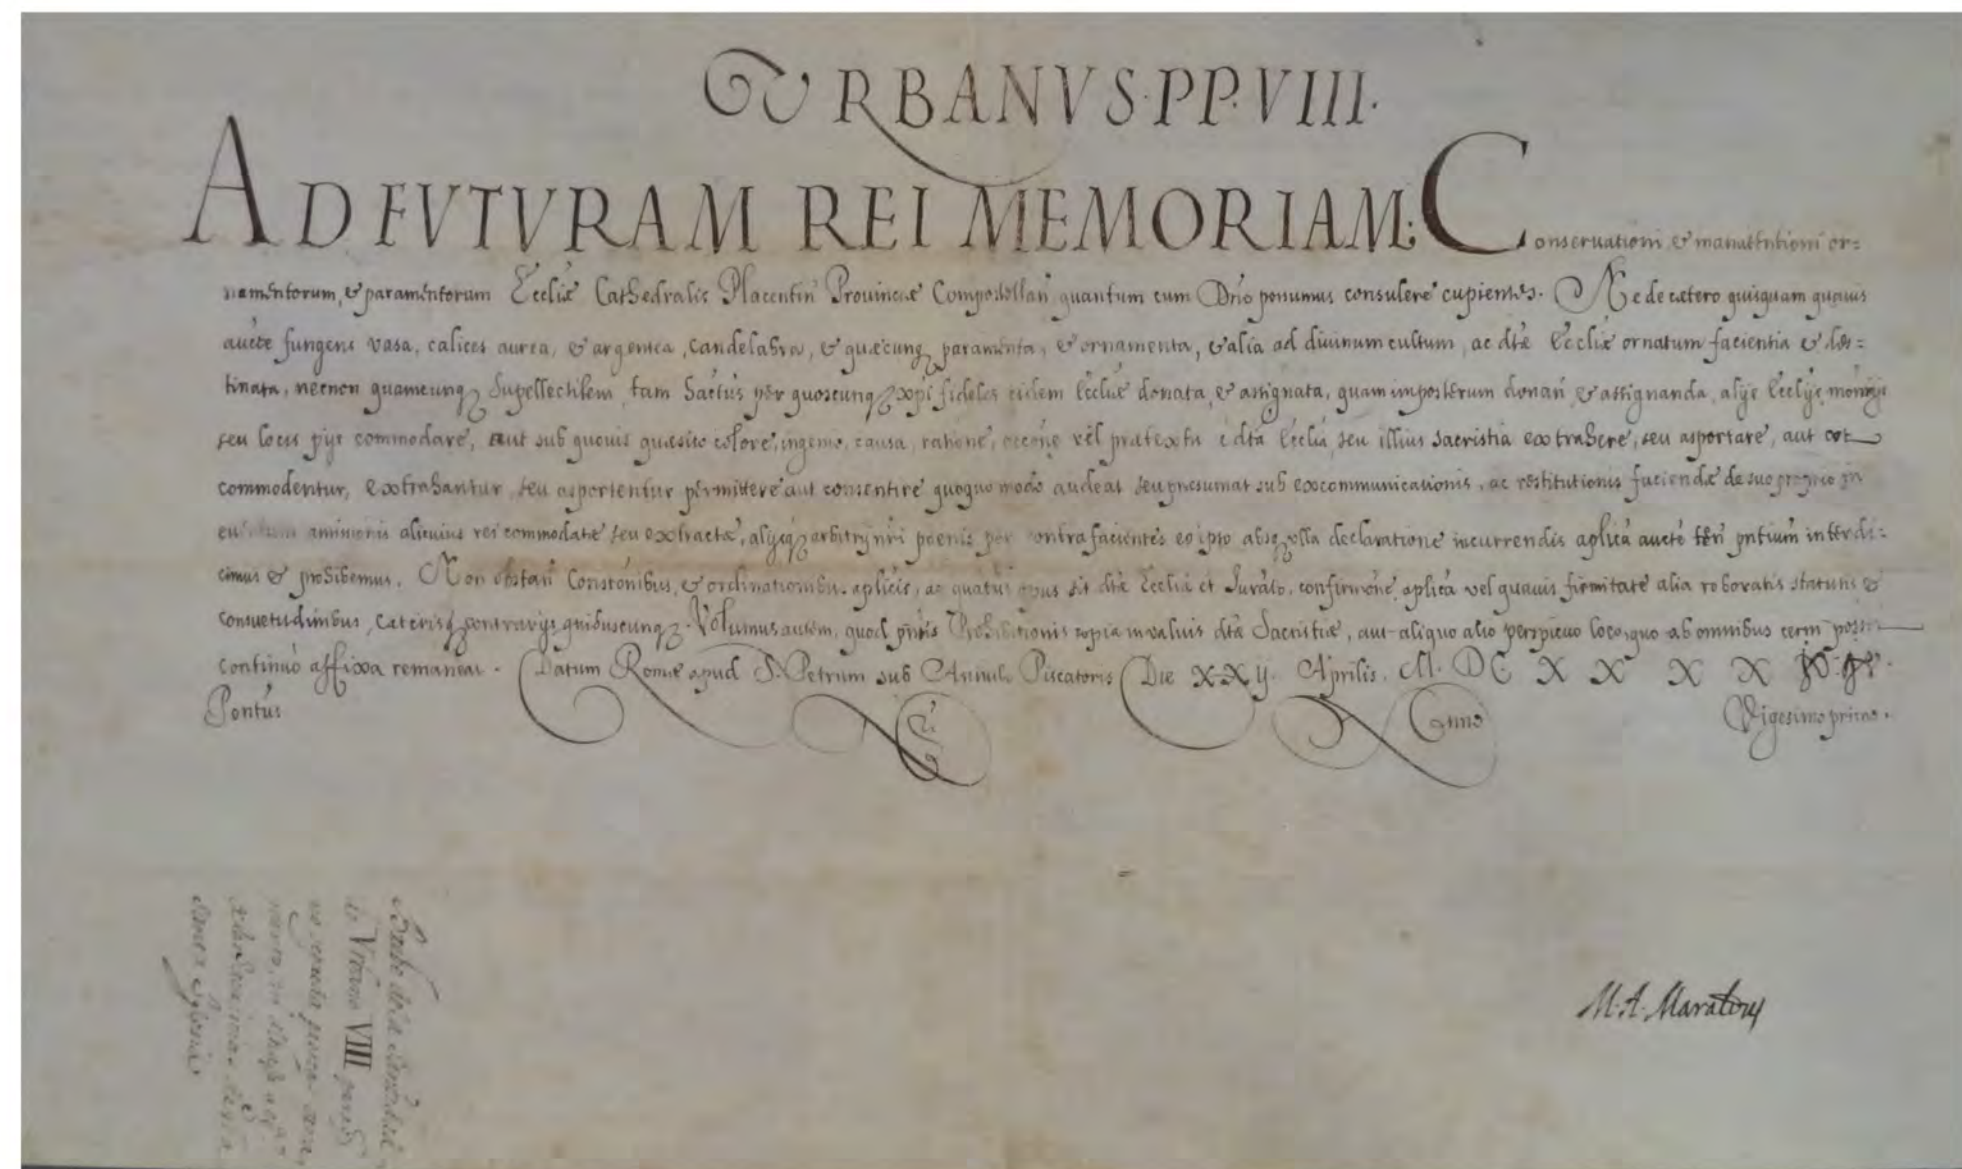 URBANVS·PP·VIII·
AD FVTVRAM REI MEMORIAM: Conseruationi, & manutentioni or=
namentorum, & paramentorum Eccliæ Cathedralis Placentin Prouinciæ Compostellan quantum cum Dño possumus consulere cupientes. Ne de cætero quisquam quauis
aucte fungens vasa, calices aurea, & argentea, candelabra, & quæcunq paramenta, & ornamenta, & alia ad diuinum cultum, ac dtæ Eccliæ ornatum facientia & des=
tinata, necnon quamcunq supellectilem tam hactus per quoscunq xpi fideles eidem Eccliæ donata, & assignata, quam imposterum donan & assignanda, alijs Eccliis
seu locis pijs commodare, aut sub quouis quæsito colore, ingenio, causa, ratione, occone vel prætextu è dta Ecclia, seu illius sacristia extrahere, seu asportare, aut
commodentur, extrahantur, seu asportentur permittere aut consentire quoquo modo audeat seu presumat sub excommunicationis, ac restitutionis faciendæ de suo proprio in
amissionis alicuius rei commodatæ seu extractæ, alijsq arbitrij nri poenis per contrafacientes eo ipso absq vlla declaratione incurrendis aplica aucte ten pntium interdi=
cimus & prohibemus. Non obstan Constonibus, & ordinationibus aplicis, ac quatus opus sit dtæ Eccliæ et Jurato, confirmone aplica vel quauis firmitate alia roboratis statutis &
consuetudinibus, cæterisq contrarijs quibuscunq. Volumus autem, quod pntis Prohibitionis copia in valuis dtæ Sacristiæ, aut aliquo alio perspicuo loco, quo ab omnibus cerni
continuo affixa remaneat. Datum Romæ apud S. Petrum sub Annulo Piscatoris Die XXij. Aprilis. M. DC X X X X
Pontus nri Anno Vigesimo primo.
M. A. Maraldus
Brebe de la Santidad
de Vrbano VIII